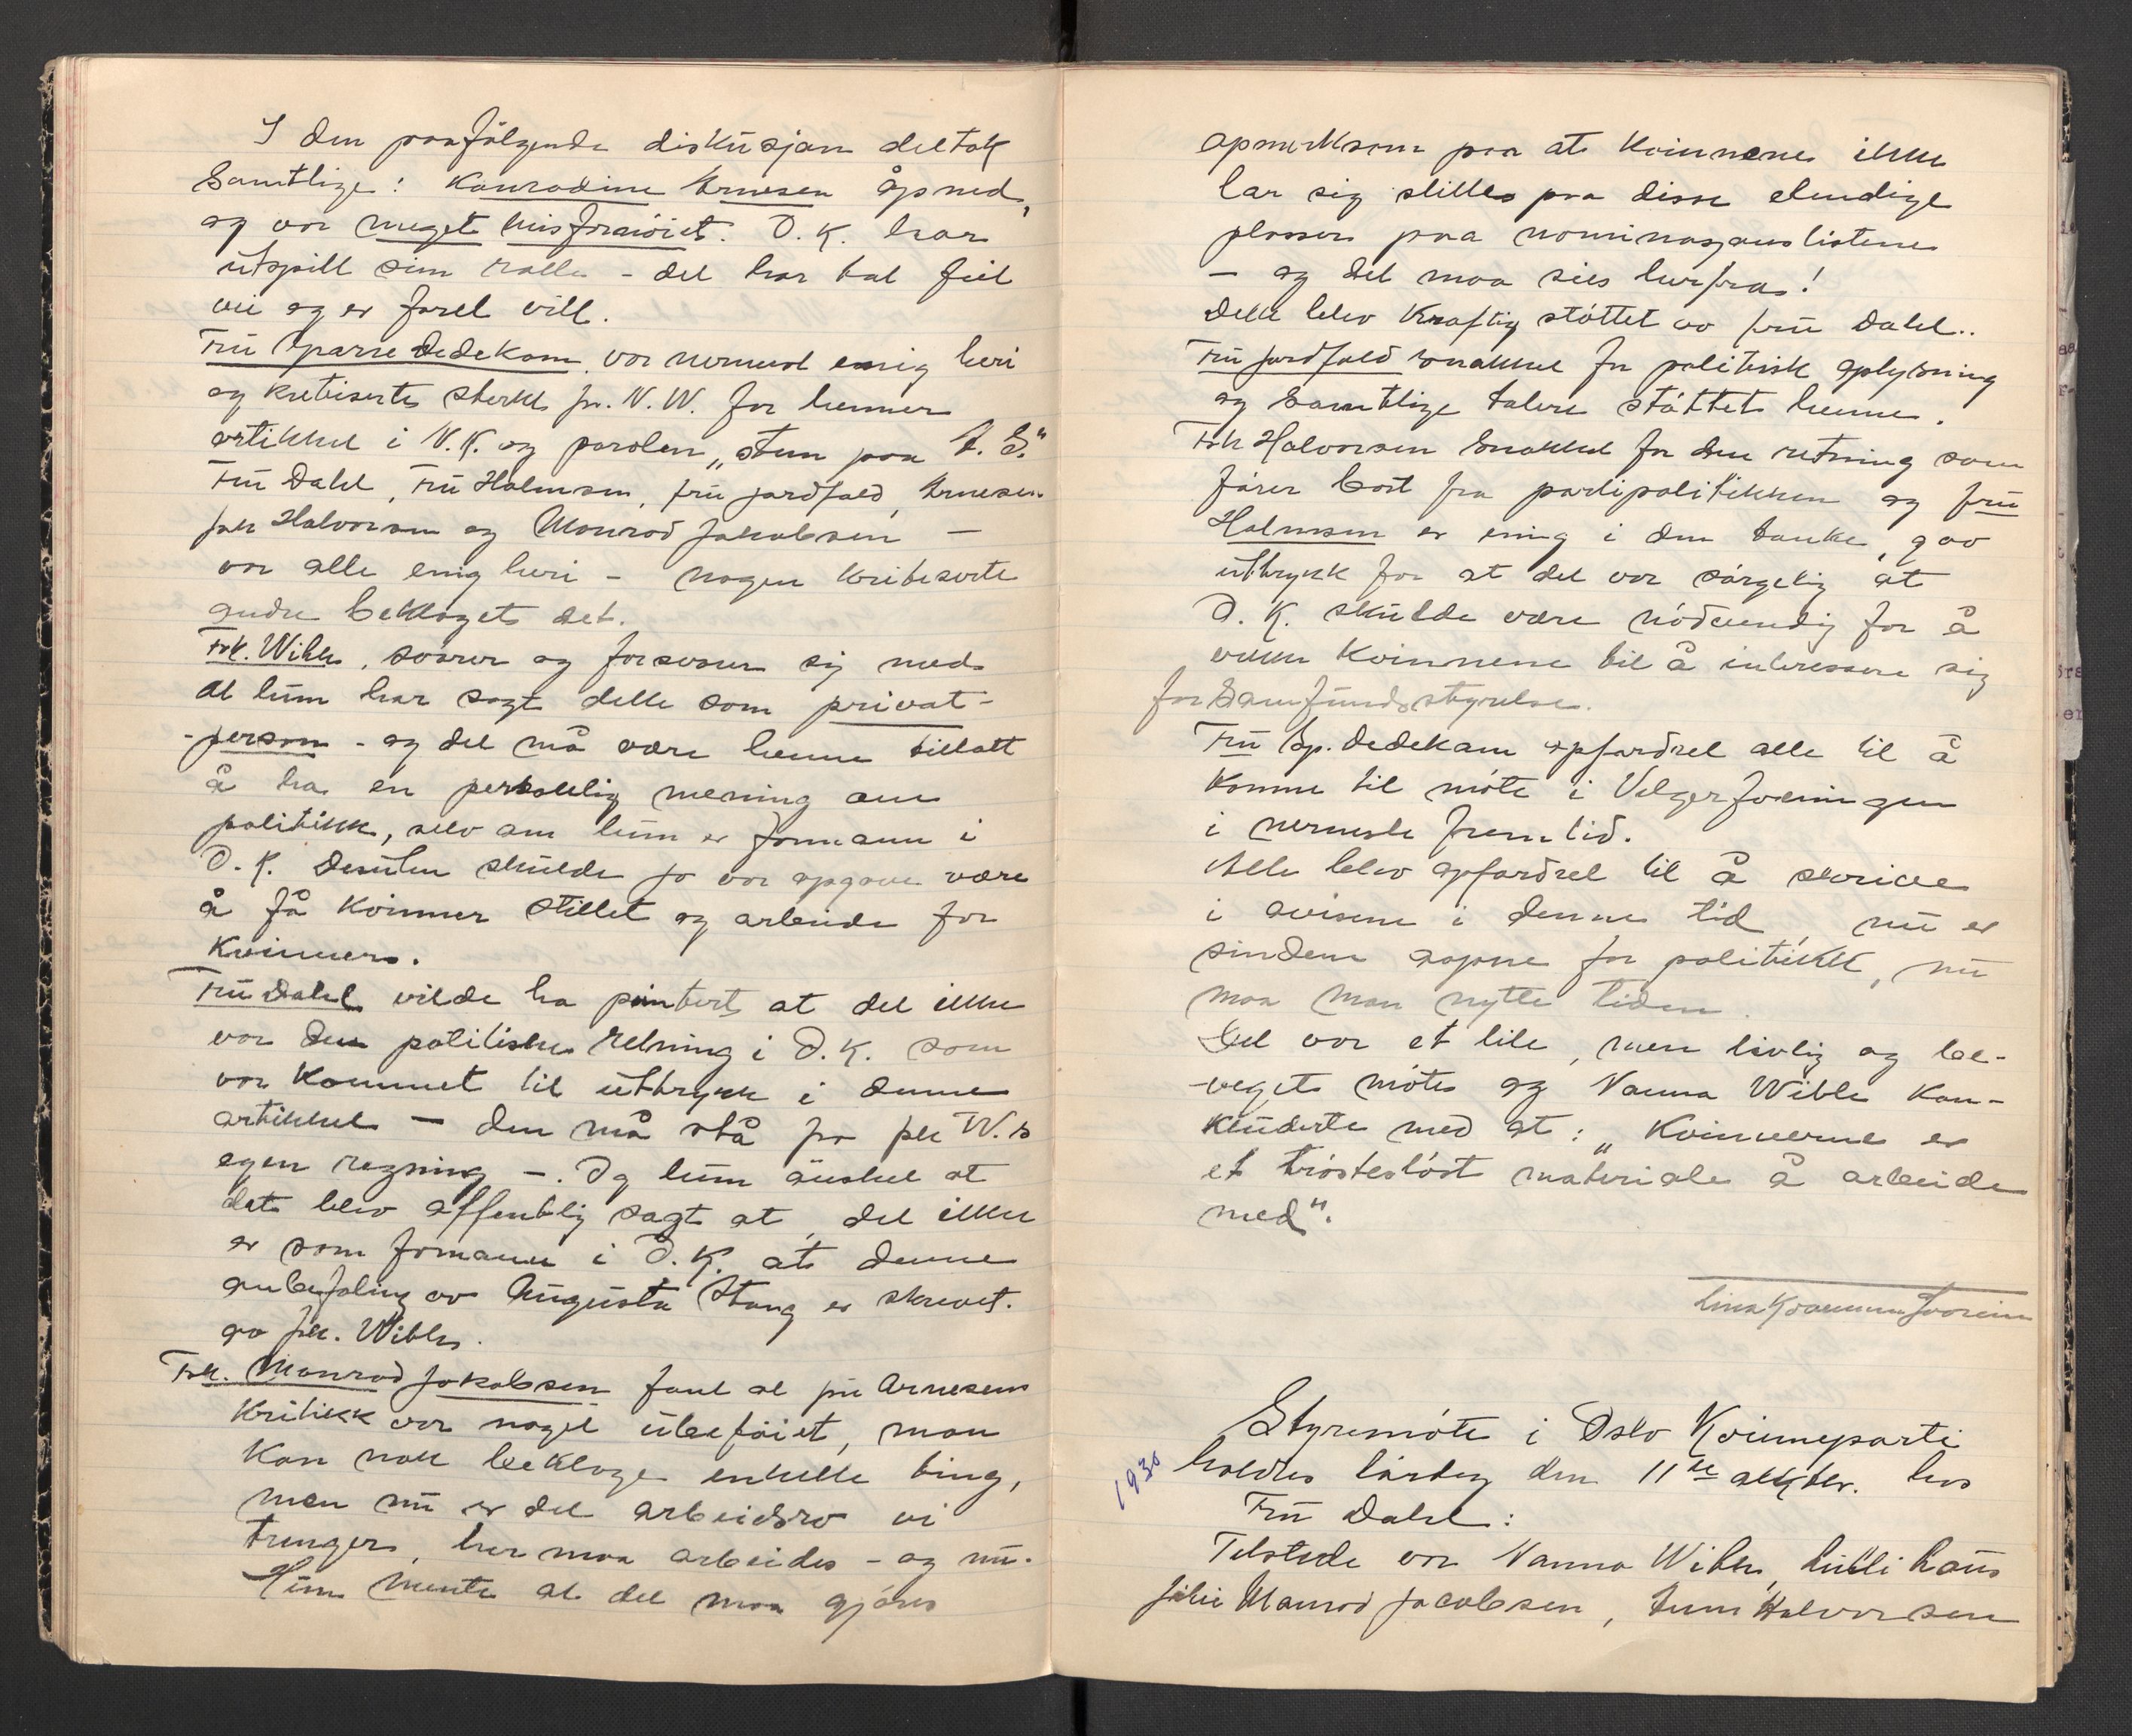 I den paafølgende diskusjon deltok
samtlige: Konradine Arnesen åpned,
og var meget misfornøiet. O.K. har
utspill sin rolle - det har tat feil
vei og er faret vill.
Fru Sparre Dedekam var nermest enig heri
og kritiserte sterkt fr. N.W. for hennes
artikkel i N.K. og parolen „stem paa A. S."
Fru Dahl, Fru Holmsen, fru Jordfald, Arnesen
frk Halvorsen og Monrad Jakobsen —
var alle enig heri - nogen kritiserte
andre beklaget det.
Frk. Wibh, svarer og forsvarer sig med
at hun har sagt dette som privat-
-person - og det må være henne tillatt
å ha en personlig mening om
politikk, selv om hun er formann i
O.K. Desuten skulde jo vor opgave være
å få kvinner stillet og arbeide for
kvinner.
Fru Dahl vilde ha pointert at det ikke
var den politiske retning i O.K. som
var kommet til uttrykk i denne
artikkel — den må stå for frk W.s
egen regning —. Og hun ønsket at
det blev offentlig sagt at det ikke
er som formann i O.K. at denne
anbefaling av Augusta Stang er skrevet.
av frk. Wibh.
Frk. Monrad Jakobsen fant at fru Arnesens
kritikk var noget ubeføiet, man
kan nok beklage enkelte ting,
men nu er det arbeidsro vi
trenger, her maa arbeides - og nu.
Hun mente at det maa gjøres
opmerksom paa at kvinnene ikke
lar sig stilles paa disse elendige
plasser paa nominasjonslistene
— og det maa sies herfra!
Dette blev kraftig støttet av fru Dahl..
Fru Jordfald snakket for politisk oplysning
og samtlige talere støttet henne.
Frk Halvorsen snakket for den retning som
fører bort fra partipolitikken og fru
Holmsen er enig i den tanke, gav
uttrykk for at det var sørgelig at
O.K. skulde være nødvendig for å
vekke kvinnene til å interessere sig
for samfundsstyrelse.
Fru Sp. Dedekam opfordret alle til å
komme til møte i Velgerforeningen
i nermeste fremtid.
Alle blev opfordret til å skrive
i avisene i denne tid, nu er
sindene aapne for politikk, nu
maa man nytte tiden.
Det var et lite, men livlig og be-
-veget møte og Nanna Wibh kon-
kluderte med at: „Kvinnerne er
et trøstesløst materiale å arbeide
med".
Styremøte i Oslo Kvinneparti
1930
holdtes lørdag den 11te oktbr. hos
Fru Dahl:
Tilstede var Nanna Wibh,
Julie Monrad Jacobsen, Halvorsen